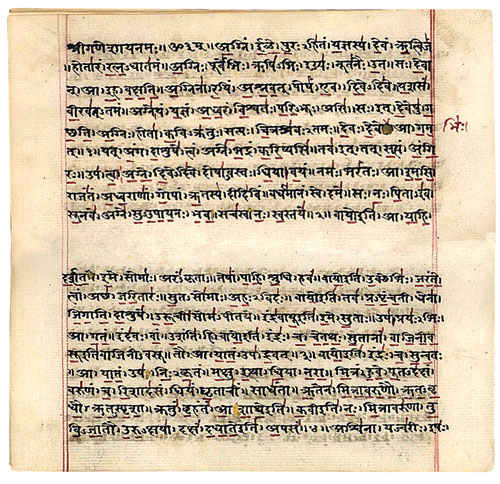 श्रीगणेशायनमः॥ॐ३म्॥ अग्निं। ईळे। पुरःऽहितं। यज्ञस्य। देवं। ऋत्विजं
।होतारं। रत्नऽधातमं॥ अग्निः। पूर्वेभिः। ऋषिऽभिः। ईड्यः। नूतनैः। उत। सः। देवा
न्। आ। इह। वक्षति॥ अग्निना। रयिं। अश्नवत्। पोषं। एव। दिवेऽदिवे। यशसं
वीरवत्ऽतमं॥ अग्ने। यं। यज्ञं। अध्वरं। विश्वतः। परिऽभूः। असि। सः। इत्। देवेषु। ग
च्छति॥ अग्निः। होता। कविऽक्रतुः। सत्यः। चित्रश्रवःऽतमः। देवः। देवे। आ। गम
भिः।
त्॥१॥ यत्। अंग। दाशुषे। त्वं। अग्ने। भद्रं। करिष्यसि। तव। इत्। तत्। सत्यं। अंगि
रः॥ उप। त्वा। अग्ने। दिवेऽदिवे। दोषाऽवस्तः। धिया। वयं। नमः। भरंतः। आ। इमसि
राजंतं। अध्वराणां। गोपां। ऋतस्य। दीदिविं। वर्धमानं। स्वे। दमे॥ सः। नः। पिताऽइव
सूनवे। अग्ने। सुऽउपायनः। भव। सचस्व। नः। स्वस्तये॥२॥ वायो इति। आ। याहि।
दर्शत। इमे। सोमाः। अरंऽकृताः। तेषां। पाहि। श्रुधि। हवं॥ वायो इति। उक्थेभिः। जरंते
त्वां। अच्छ। जरितारः। सुतऽसोमाः। अहःऽविदः॥ वायो इति। तव। प्रऽपृंचती। धेना
जिगाति। दाशुषे। उरूची। सोमऽपीतये॥ इंद्रवायू इति। इमे। सुताः। उप। प्रयःऽभिः।
आ। गतं। इंदवः। वां। उशंति। हि॥ वायो इति। इंद्रः। च। चेतथः। सुतानां। वाजिनीव
सू इति वाजिनीऽवसू। तौ। आ। यातं। उप। द्रवत्॥३॥ वायो इति। इंद्रः। च। सुन्वतः
।आ। यातं। उप। निःऽकृतं। मक्षु। इत्था। धिया। नरा॥ मित्रं। हुवे। पूतऽदक्षं
वरुणं। च। रिशादसं। धियं। घृताचीं। साधंता॥ ऋतेन। मित्रावरुणौ। ऋतऽवृ
धौ। ऋतऽस्पृशा। क्रतुं। बृहंतं। आशाथे इति॥ कवी इति। नः। मित्रावरुणा। तु
विऽजातौ। उरुऽक्षया। दक्षं। दधाते इति। अपसं॥४॥ अश्विना। यज्वरीः। इषः